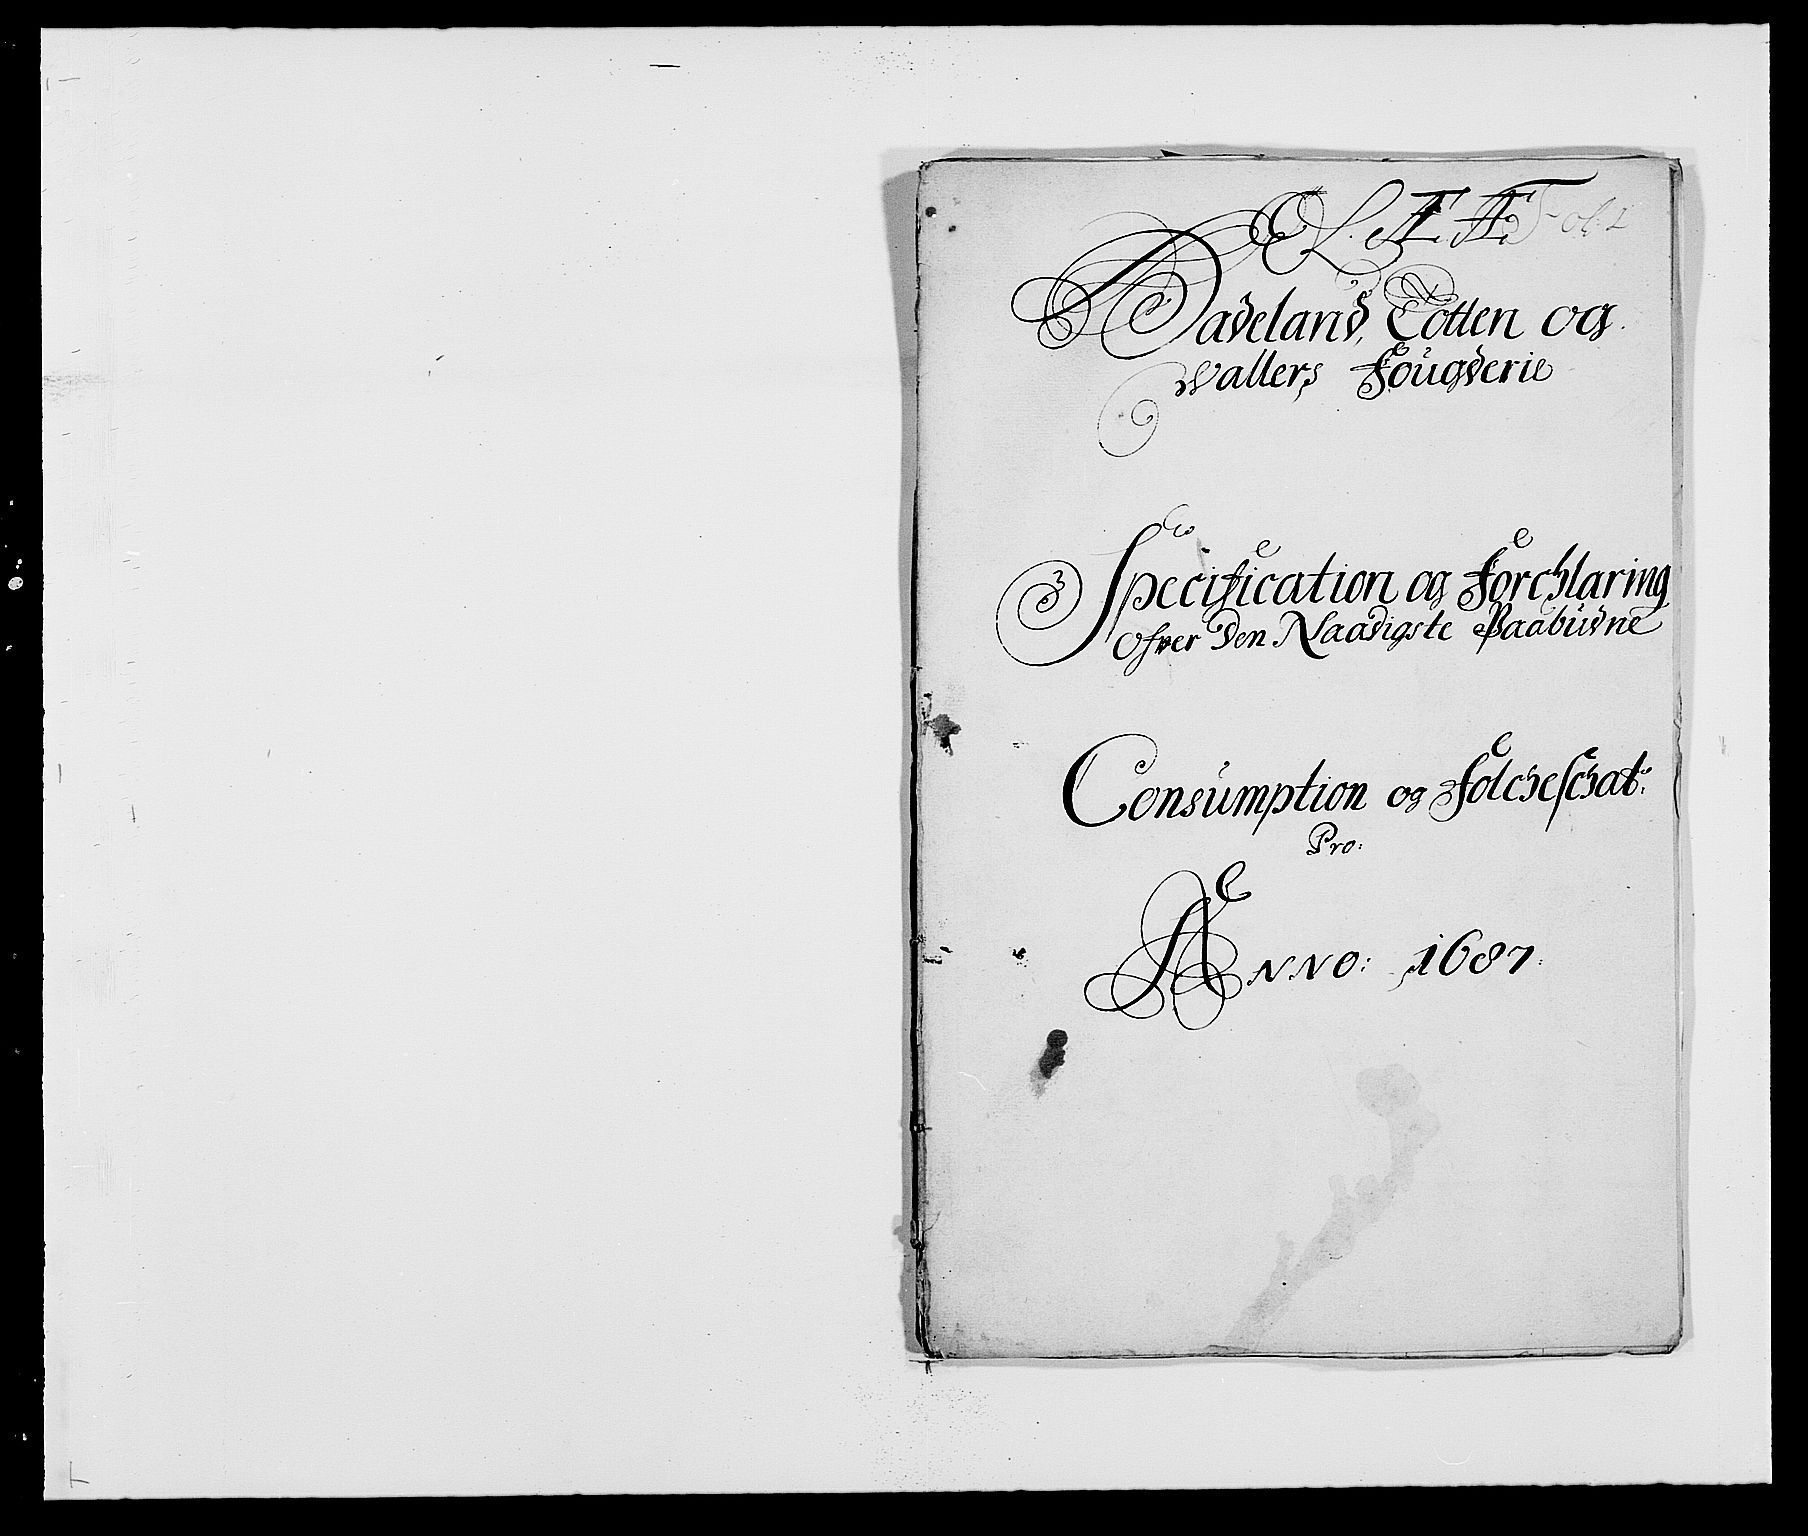 Hadeland, Totten og
Wallers Fougderie
Specification og Forchlaring
Ofver den Naadigste Paabudne
Consumption og Folcheschat:
Pro:
Anno: 1687